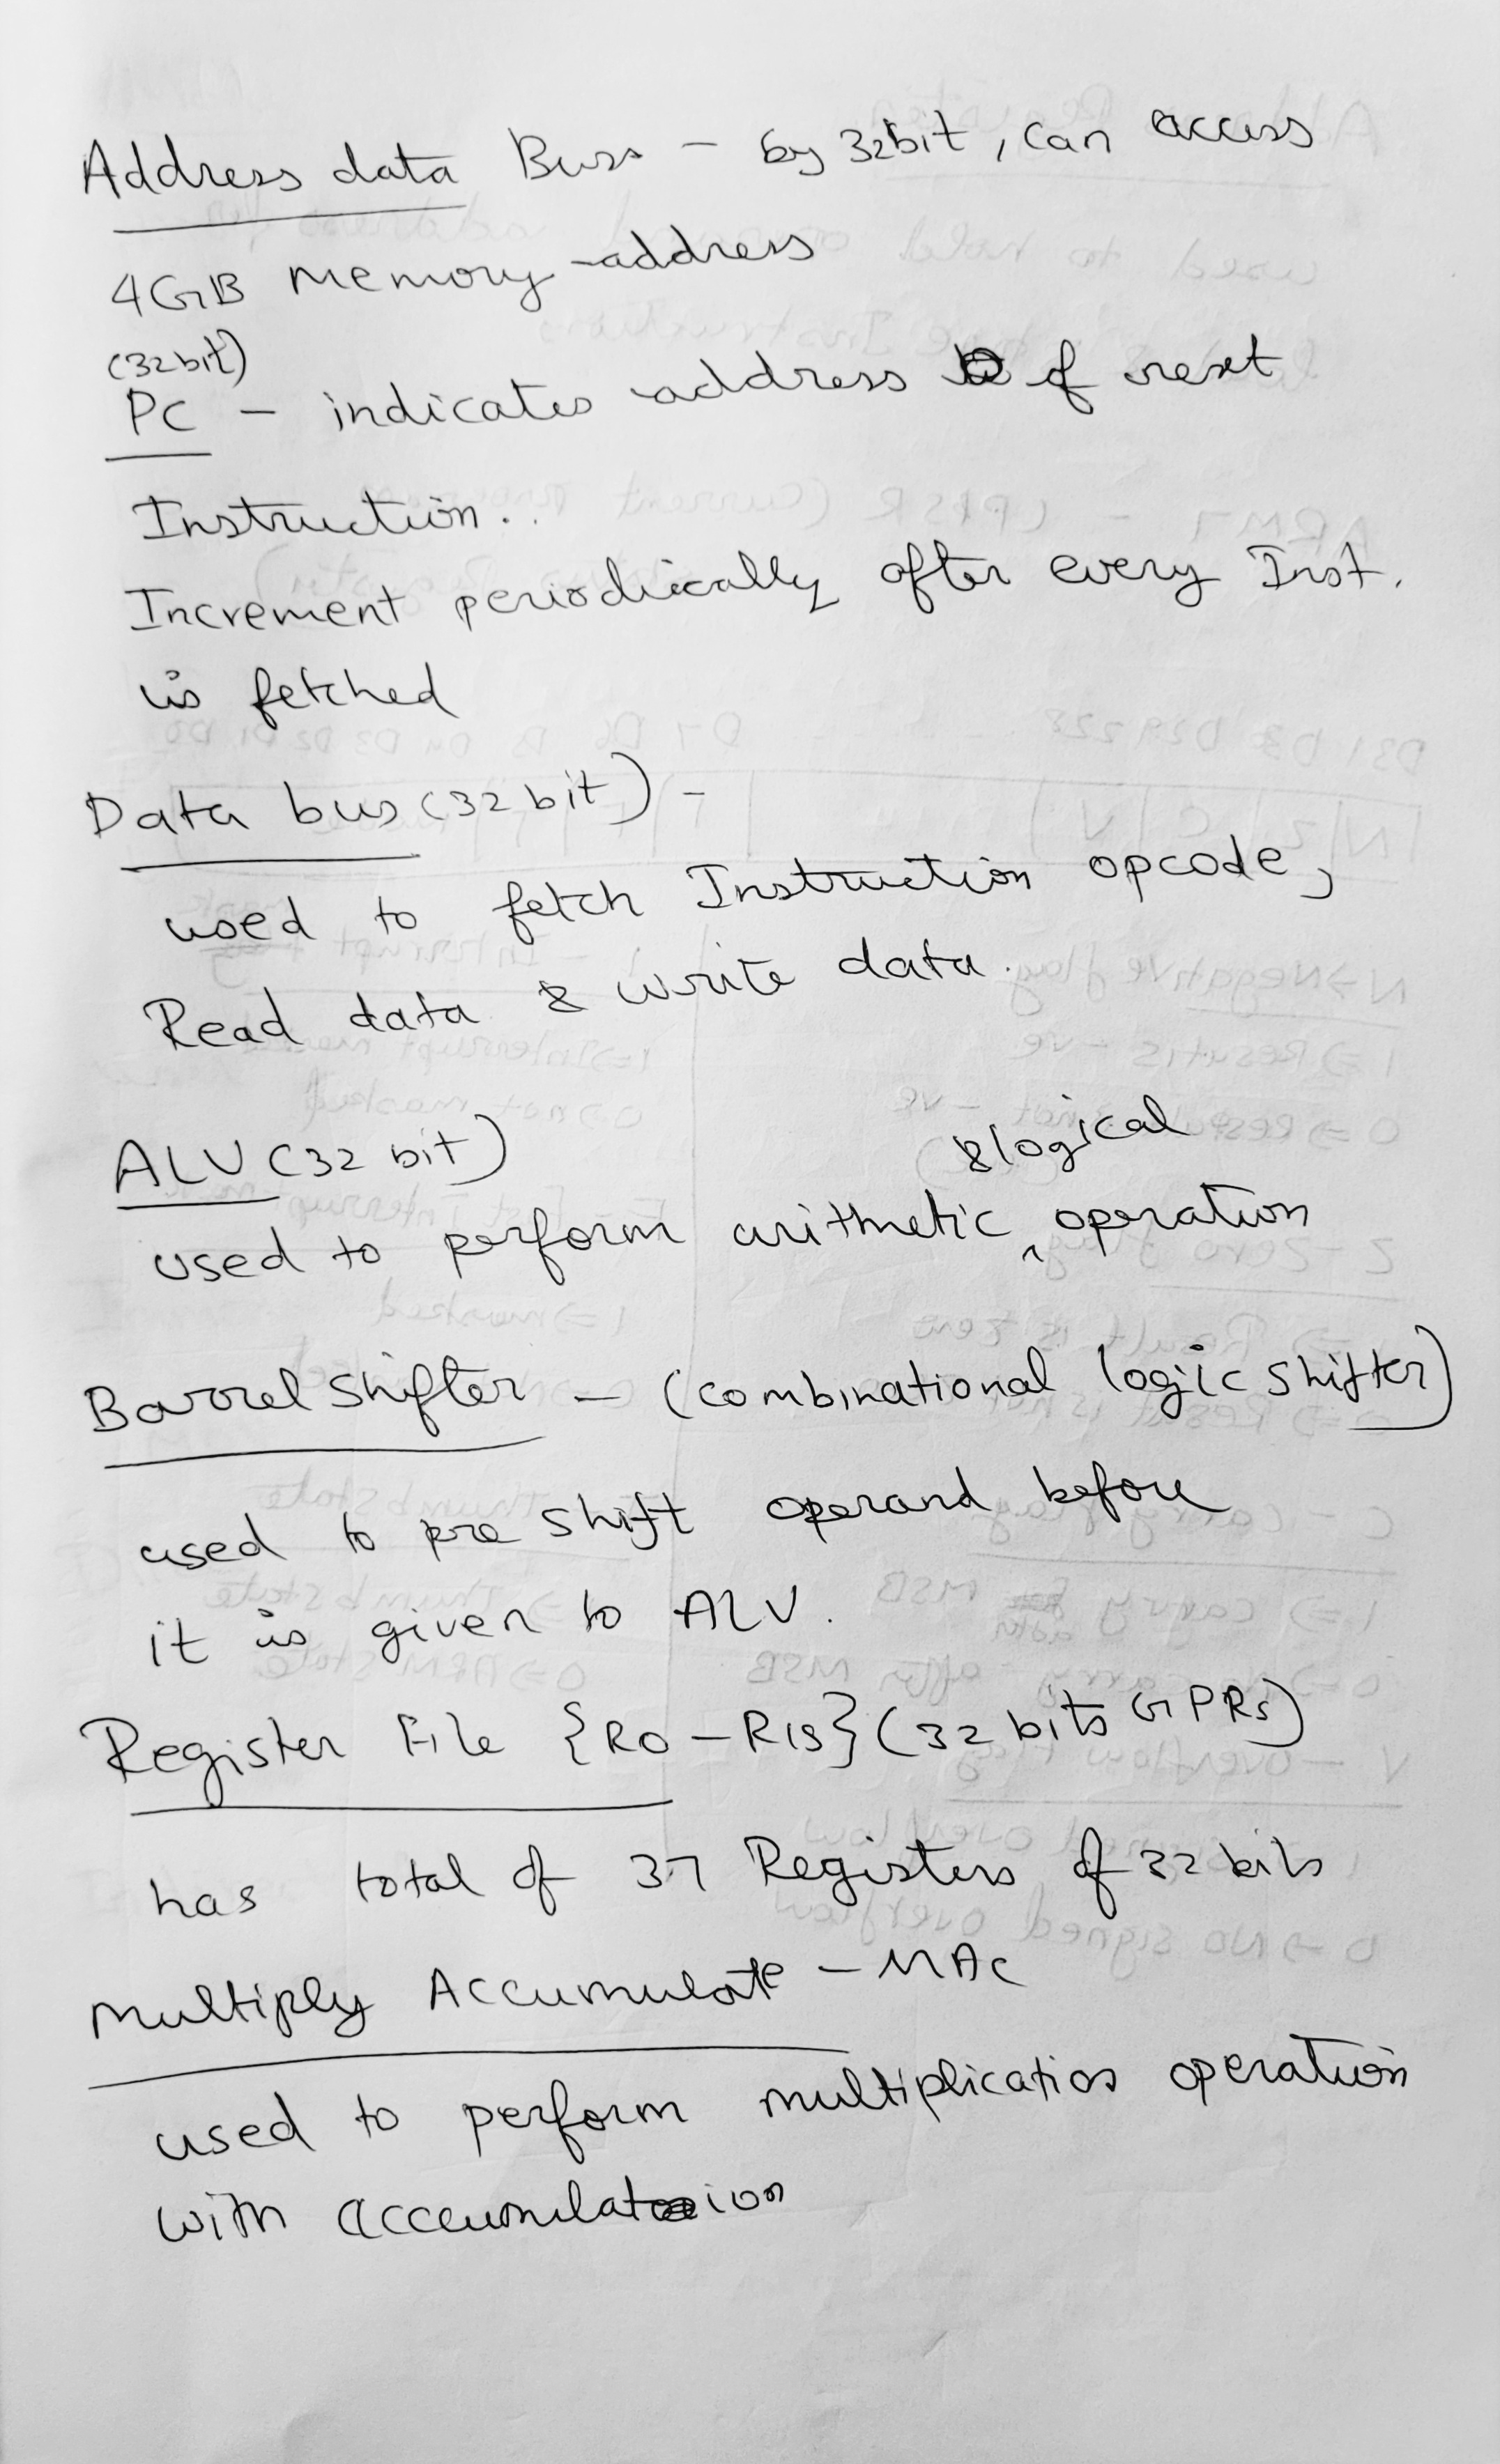 Address data Buss - by 32bit, can access
4GB memory address
(32bit)
PC - indicates address of next
Instruction..
Increment periodically after every Inst.
is fetched
Data bus (32 bit) -
used to fetch Instruction opcode,
Read data & write data.
ALU (32 bit)
& logical
used to perform arithmetic ^ operation
Barrel shifter - (combinational logic shifter)
used to pre shift operand before
it is given to ALU.
Register File {R0 - R15} (32 bits GPRs)
has total of 37 Registers of 32 bits
Multiply Accumulate - MAC
used to perform multiplication operation
with accumulation